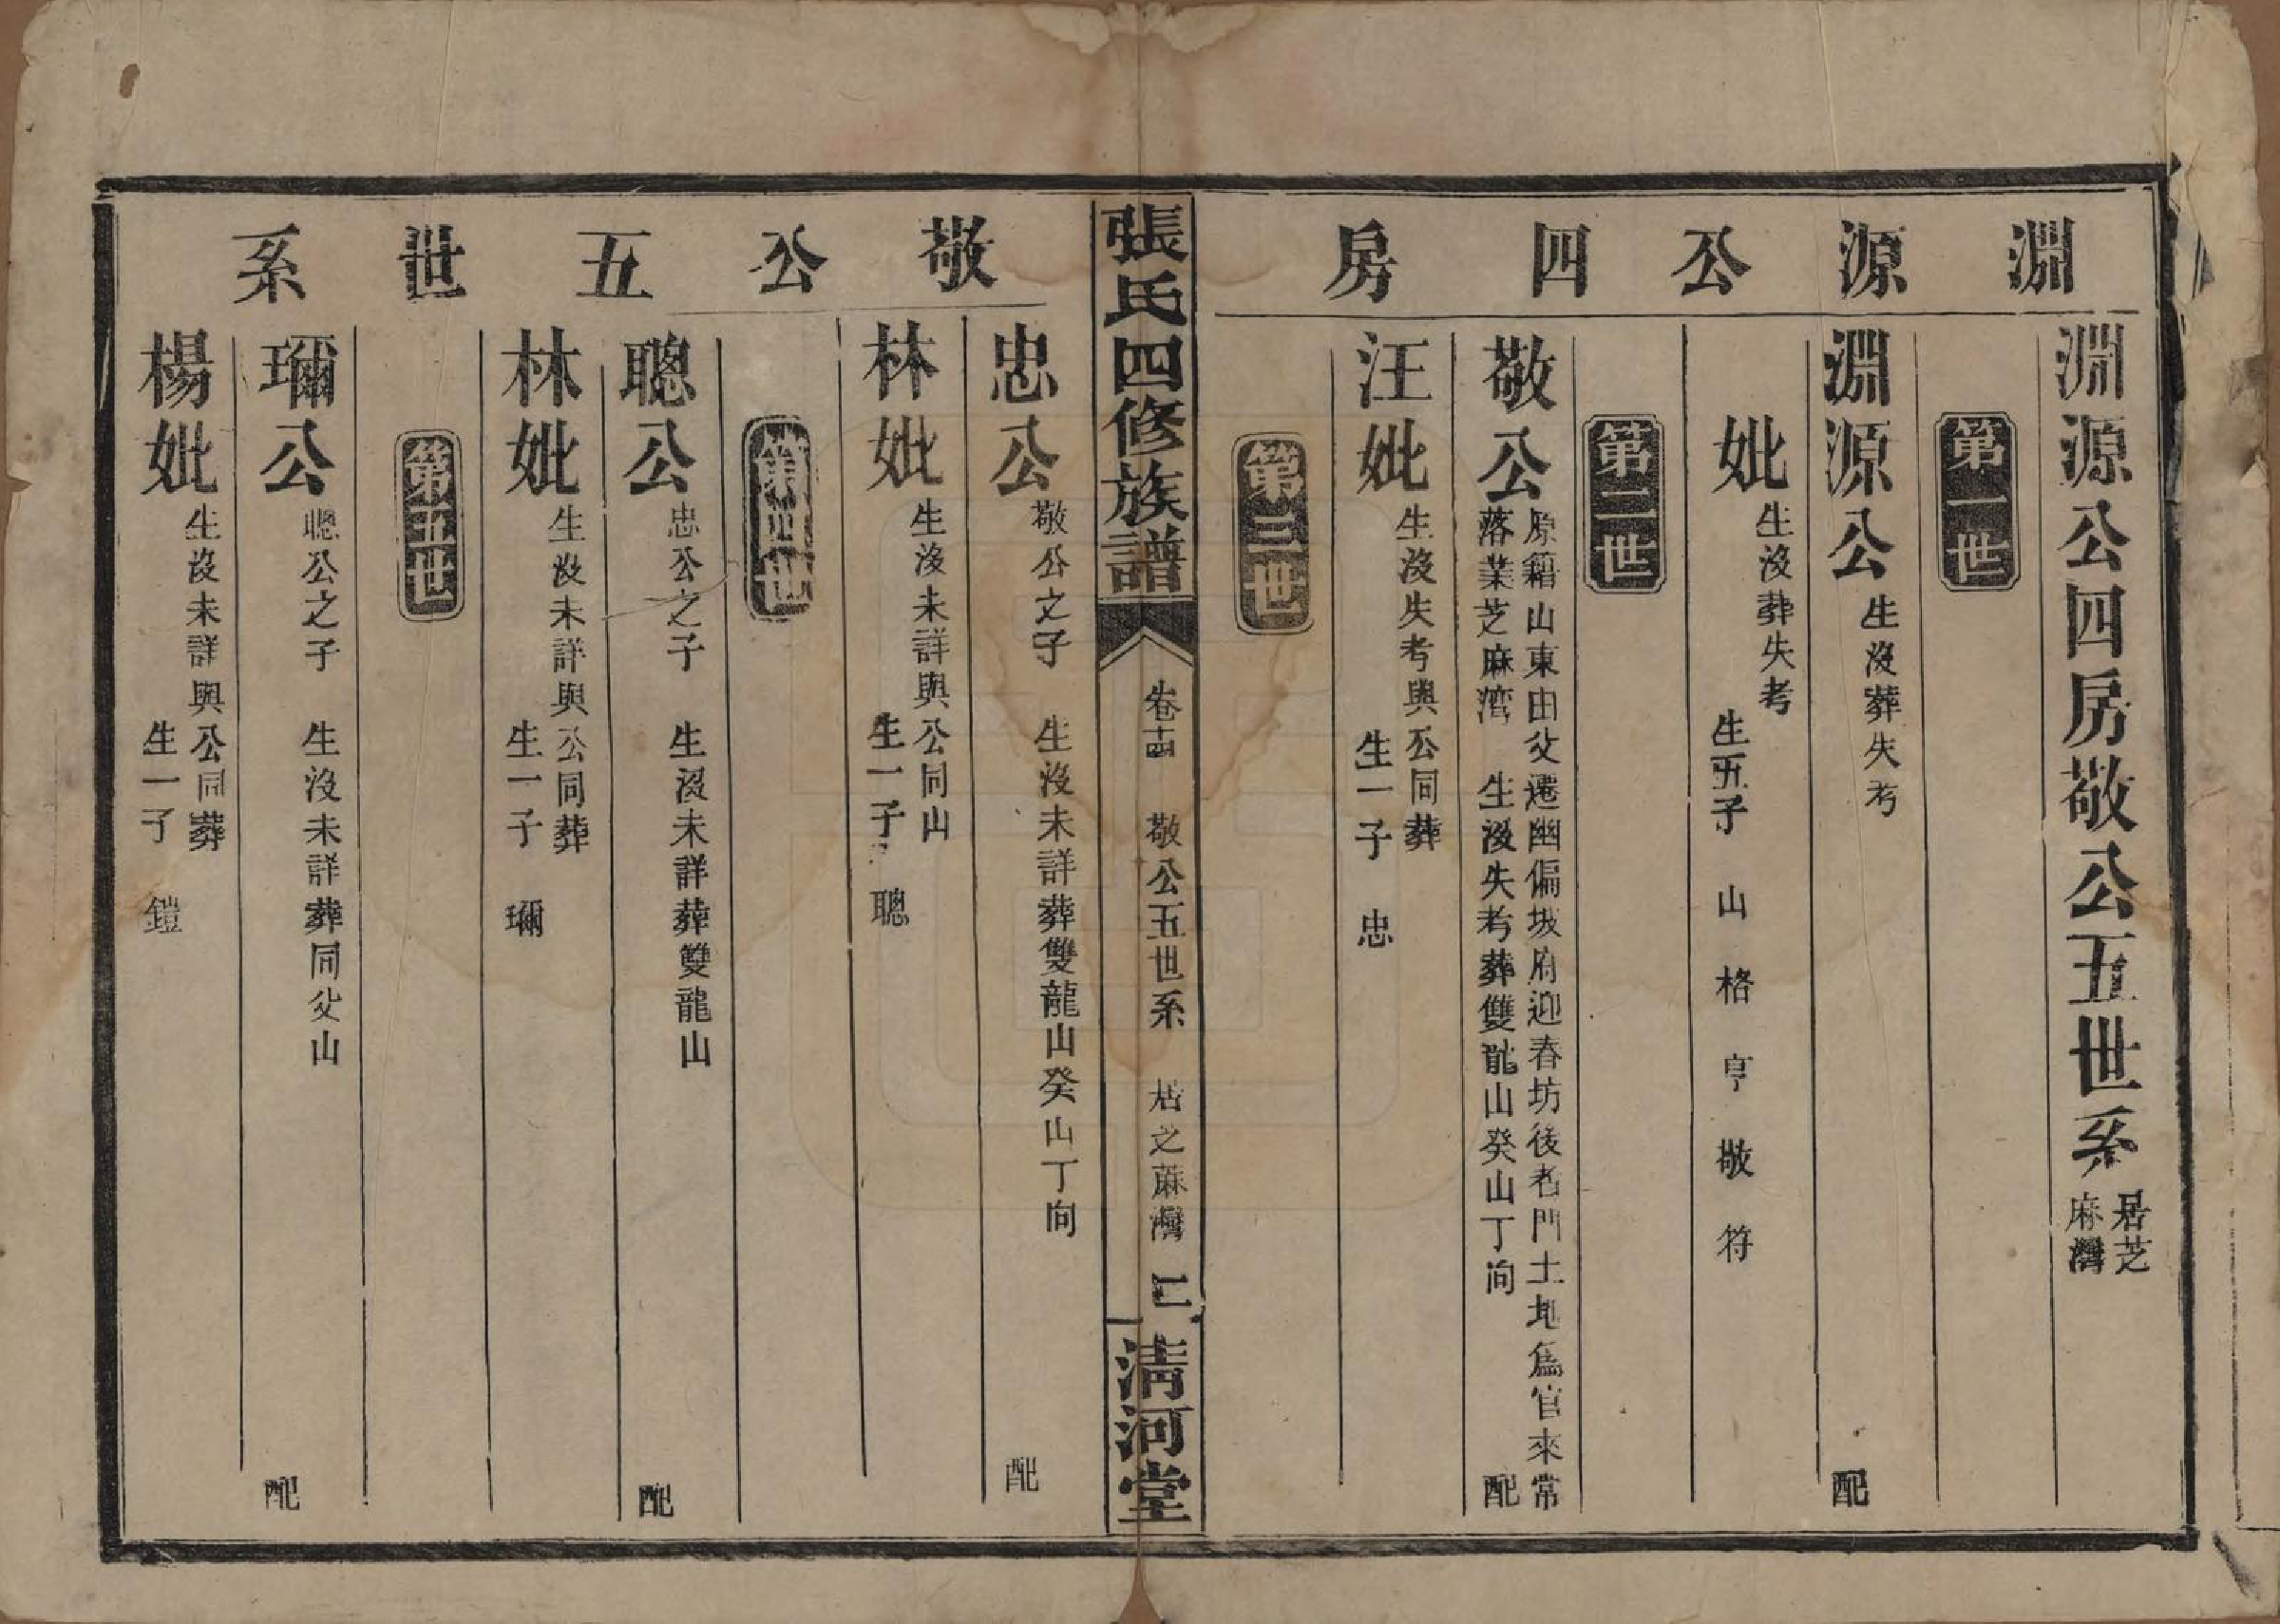 淵源公四房
淵源公四房敬公五世系
居芝
麻灣
第一世
淵源公 生沒葬失考 配
妣 生沒葬失考
生五子 山 格 亨 敬 符
第二世
敬公 原籍山東由父遷幽偏坂府迎春坊後老門土地爲官來常
落業芝麻湾 生沒失考葬雙龍山癸山丁向 配
汪妣 生沒失考與公同葬
生一子 忠
第三世
張氏四修族譜
卷十四 敬公五世系 居之蔴灣 二
清河堂
敬公五世系
忠公 敬公之子 生沒未詳葬雙龍山癸山丁向 配
林妣 生沒未詳與公同山
生一子 聰
第四世
聰公 忠公之子 生沒未詳葬雙龍山 配
林妣 生沒未詳與公同葬
生一子 瓕
第五世
瓕公 聰公之子 生沒未詳葬同父山 配
楊妣 生沒未詳與公同葬
生一子 鎧